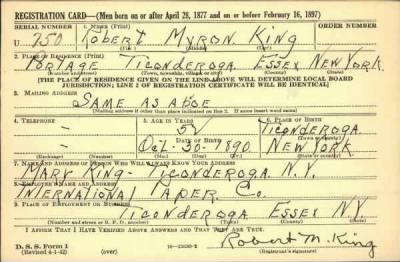 REGISTRATION CARD—(Men born on or after April 28, 1877 and on or before February 16, 1897)
SERIAL NUMBER 1. NAME (Print) ORDER NUMBER
U 250 ROBERT MYRON KING
(First) (Middle) (Last)
2. PLACE OF RESIDENCE (Print)
PORTAGE TICONDEROGA ESSEX NEW YORK
(Number and street) (Town, township, village, or city) (County) (State)
[THE PLACE OF RESIDENCE GIVEN ON THE LINE ABOVE WILL DETERMINE LOCAL BOARD
JURISDICTION; LINE 2 OF REGISTRATION CERTIFICATE WILL BE IDENTICAL]
3. MAILING ADDRESS
SAME AS ABOE
[Mailing address if other than place indicated on line 2. If same insert word same]
4. TELEPHONE 5. AGE IN YEARS 6. PLACE OF BIRTH
- 52 TICONDEROGA
DATE OF BIRTH (Town or county)
- Oct-30-1890 NEW YORK
(Exchange) (Number) (Mo.) (Day) (Yr.) (State or country)
7. NAME AND ADDRESS OF PERSON WHO WILL ALWAYS KNOW YOUR ADDRESS
MARY KING- TICONDEROGA N.Y.
8. EMPLOYER'S NAME AND ADDRESS
INTERNATIONAL PAPER Co.
9. PLACE OF EMPLOYMENT OR BUSINESS
TICONDEROGA ESSEX N.Y.
(Number and street or R. F. D. number) (Town) (County) (State)
I AFFIRM THAT I HAVE VERIFIED ABOVE ANSWERS AND THAT THEY ARE TRUE.
D. S. S. Form 1
(Revised 4-1-42) (over) Robert M. King
(Registrant's signature)